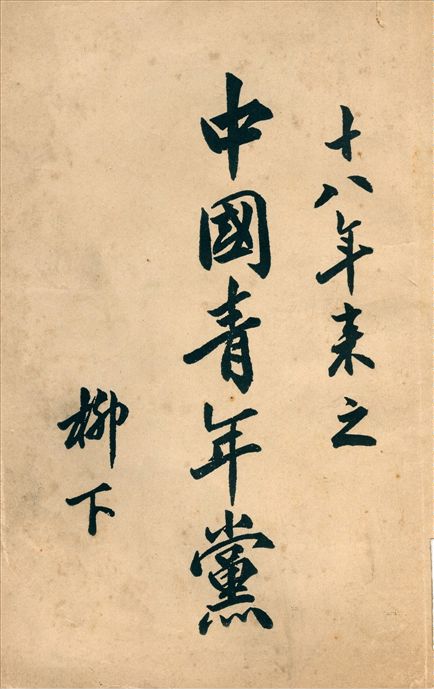 十八年来之
中國青年黨
柳下